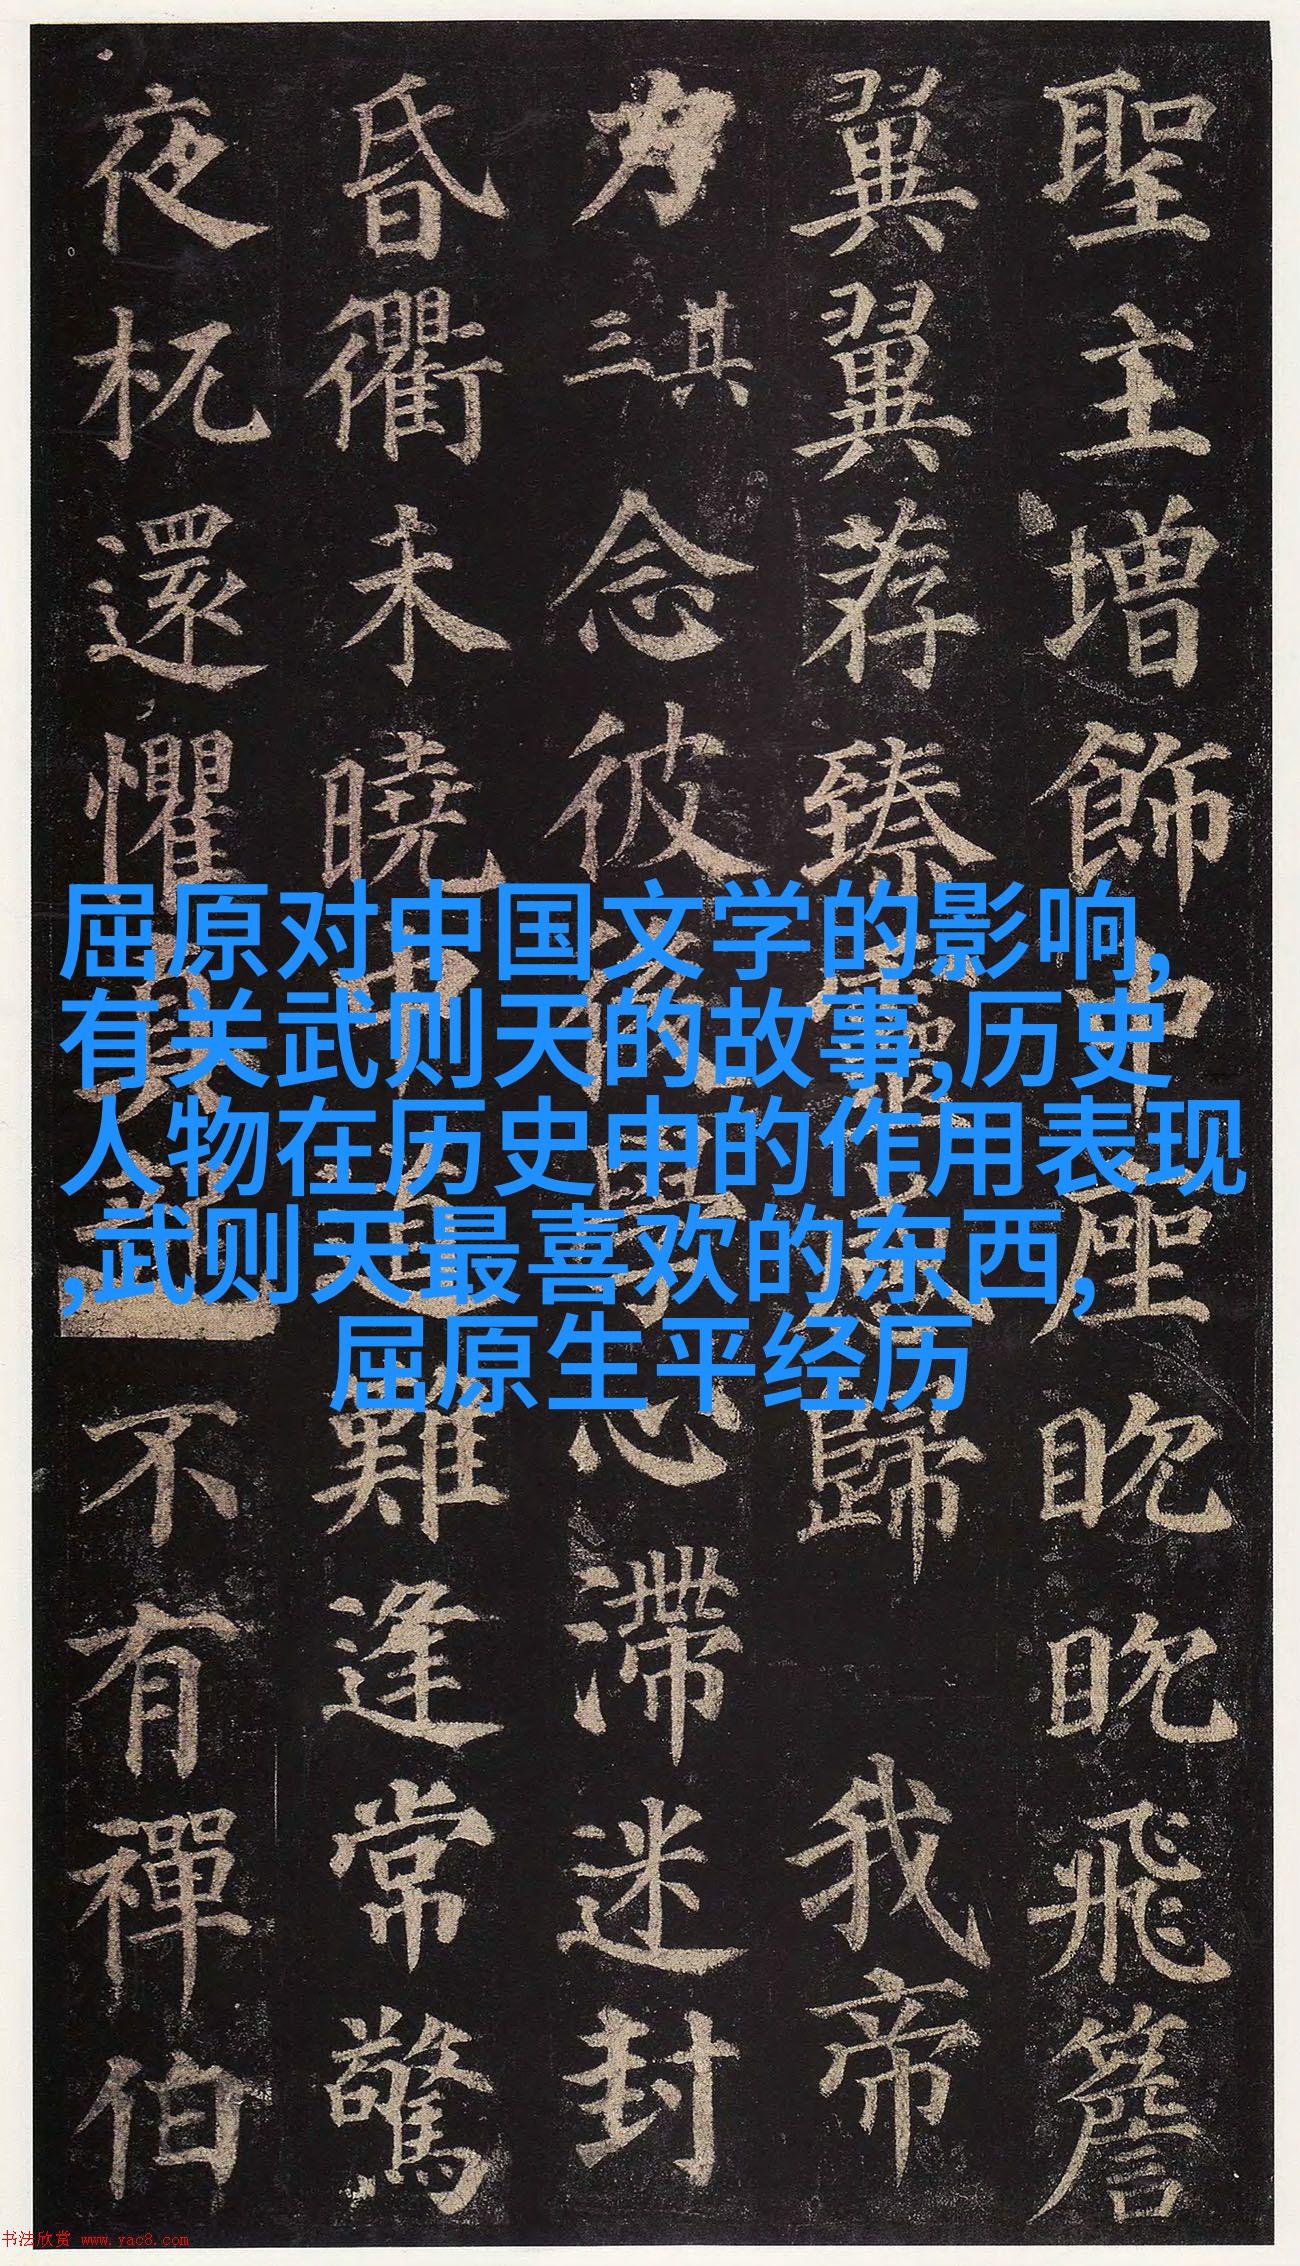 聖主增飾中座眈眈飛簷
翼翼荐臻靈感歸我帝
力其三念彼後學心滯迷封
昏衢未曉中道難逢常驚
夜杌還懼真龍不有禪伯
屈原对中国文学的影响,
有关武则天的故事,历史
人物在历史中的作用表现
,武则天最喜欢的东西,
屈原生平经历
书法欣赏 www.yac8.com